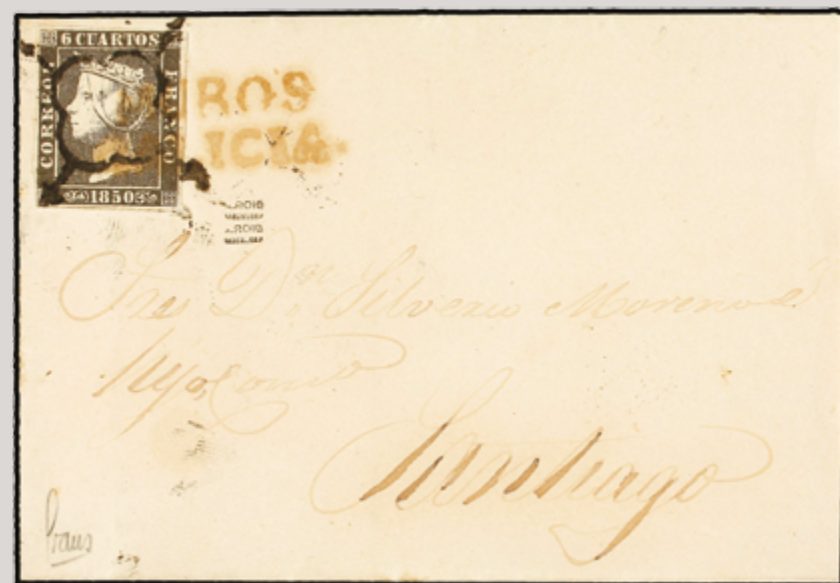 6 CUARTOS
CORREOS
FRANCO
1850
ROS
ICIA.
ROIG
ROIG
Sres D.n Silverio Moreno é
hijo,
Santiago